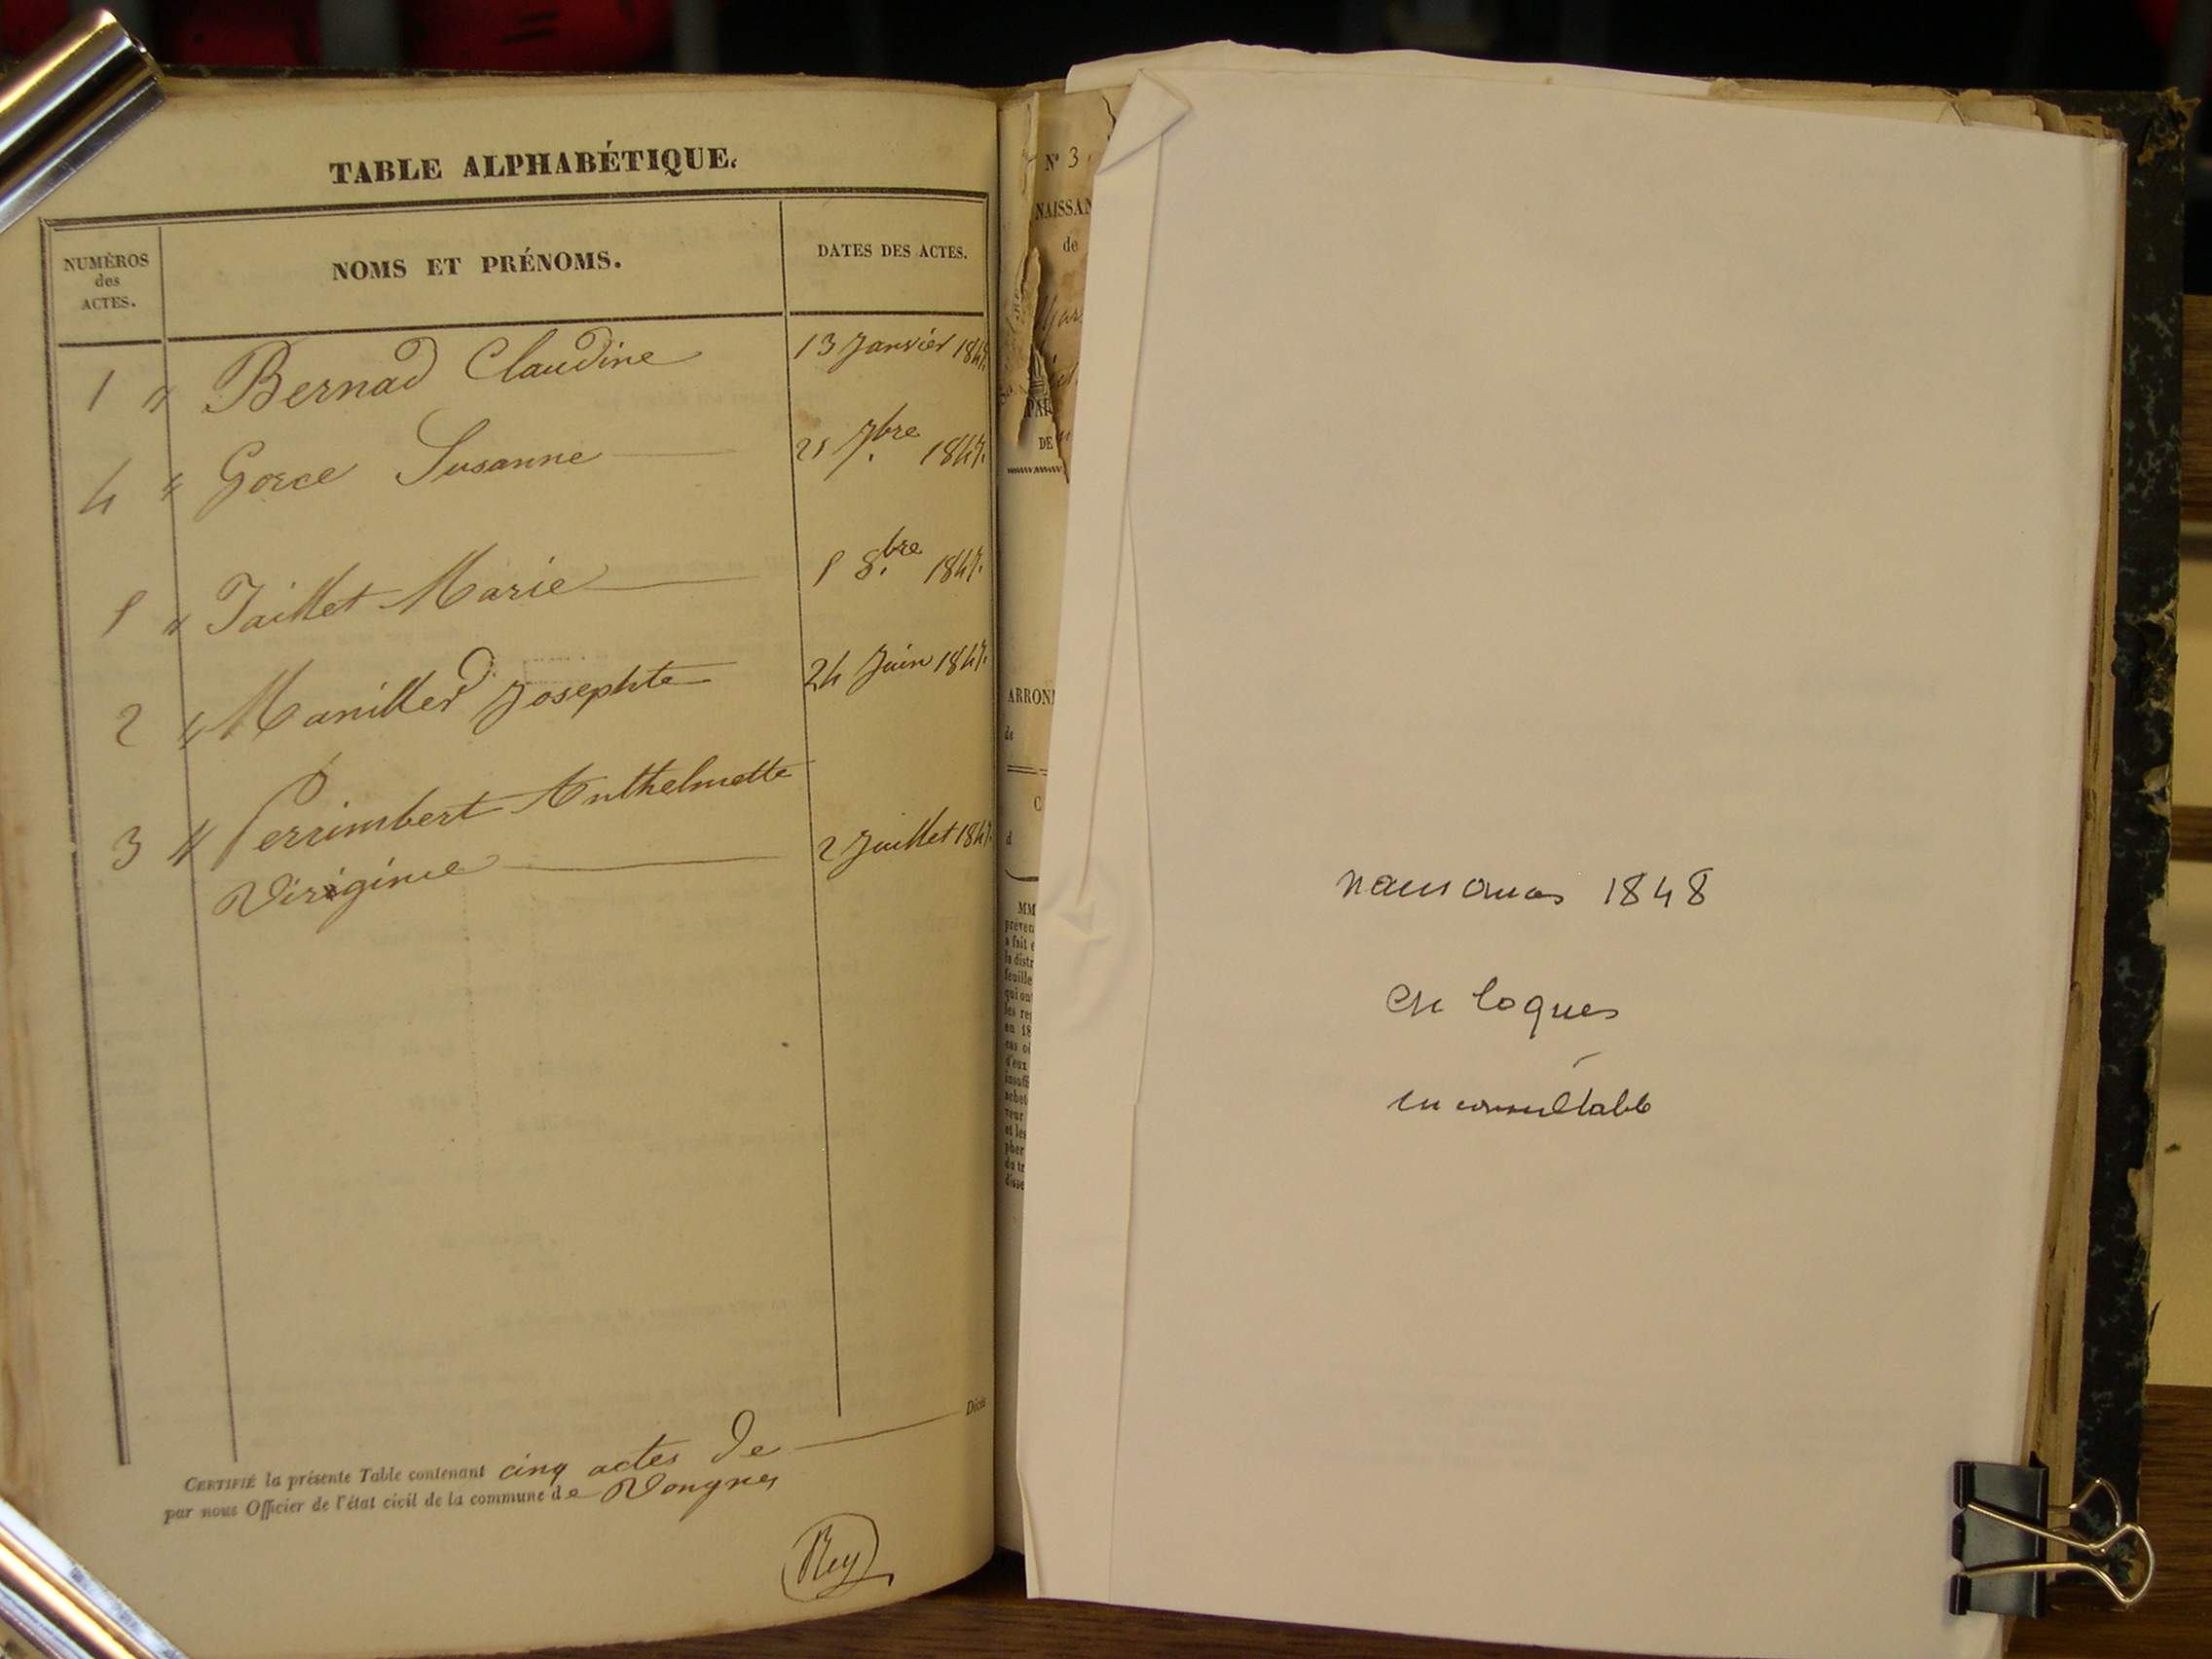 TABLE ALPHABÉTIQUE.
NUMÉROS
des
ACTES.
NOMS ET PRÉNOMS.
DATES DES ACTES.
1 " Bernad Claudine 13 Janvier 1847.
4 " Gorce Susanne 25 7bre 1847.
5 " Jaillet Marie 5 8.bre 1847.
2 " Manillier Josephte 24 Juin 1847.
3 " Perrimbert Anthelmette
Virginie 2 Juillet 1847.
CERTIFIÉ la présente Table contenant cinq actes de Décès
par nous Officier de l'état civil de la commune de Vongnes
Rey
N° 3
NAISSAN
de
PAR
DE
ARRON
de
d
MM
a fait
la distr
feuille
qui on
les re
en 18
cas o
d'eux
insuffi
et les
pher
du tr
naissances 1848
en loques
inconsultable